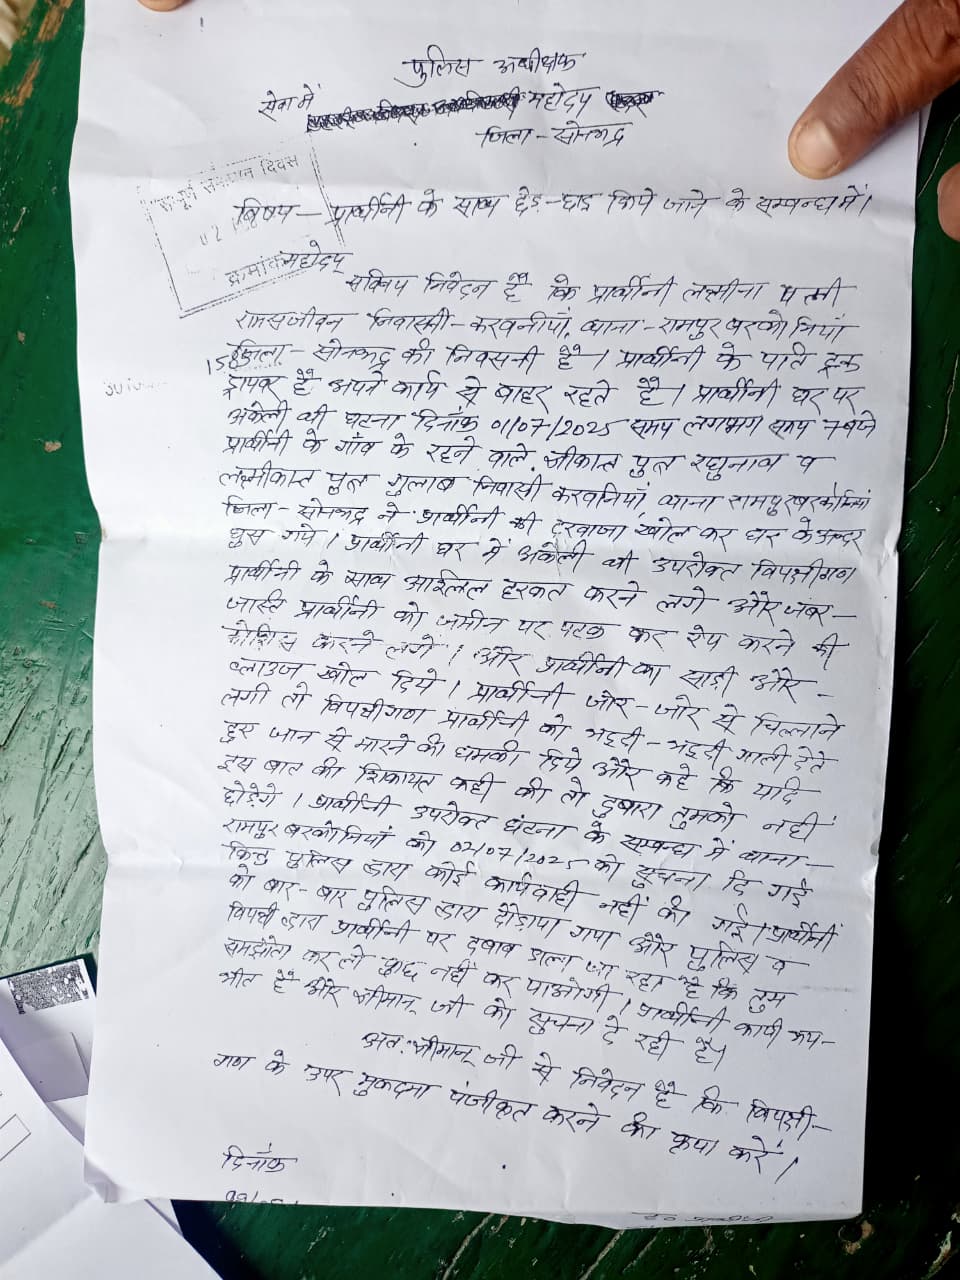 पुलिस अधीक्षक
सेवा में
महोदय
जिला - सोनभद्र
सम्पूर्ण समाधान दिवस
विषय - प्रार्थीनी के साथ छेड़-छाड़ किये जाने के सम्बन्ध में।
क्रमांक
महोदय
सविनय निवेदन है कि प्रार्थीनी लक्ष्मीना पत्नी
रामसजीवन निवासनी - करवनीयां, थाना - रामपुर बरकोनियां
जिला - सोनभद्र की निवासनी है। प्रार्थीनी के पति ट्रक
ड्रायवर है अपने कार्य से बाहर रहते है। प्रार्थीनी घर पर
अकेली थी घटना दिनाँक 01/07/2025 समय लगभग समय 7 बजे
प्रार्थीनी के गाँव के रहने वाले श्रीकान्त पुत्र रघुनाथ व
लक्ष्मीकान्त पुत्र गुलाब निवासी करवनियाँ, थाना रामपुर बरकोनियां
जिला - सोनभद्र ने प्रार्थीनी की दरवाजा खोल कर घर के अन्दर
घुस गये। प्रार्थीनी घर में अकेली थी उपरोक्त विपक्षीगण
प्रार्थीनी के साथ आश्लिल हरकत करने लगे और जबर-
जास्ती प्रार्थीनी को जमीन पर पटक कर रेप करने की
कोशिस करने लगे। और प्रार्थीनी का साड़ी और-
ब्लाउज खोल दिये। प्रार्थीनी जोर-जोर से चिल्लाने
लगी तो विपक्षीगण प्रार्थीनी को भद्दी-भद्दी गाली देते
हुए जान से मारने की धमकी दिये और कहे कि यदि
इस बात की शिकायत कही की तो दुबारा तुमको नहीं
छोड़ेगे। प्रार्थीनी उपरोक्त घंटना के सम्बन्ध में थाना -
रामपुर बरकोनियाँ को 02/07/2025 को सुचना दि गई
किन्तु पुलिस द्वारा कोई कार्यवाही नहीं की गई। प्रार्थीनीं
को बार-बार पुलिस द्वारा दौड़ाया गया और पुलिस व
विपक्षी द्वारा प्रार्थीनी पर दबाव डाला जा रहा है कि तुम
समझौता कर लो कुछ नहीं कर पाओगी। प्रार्थीनी काफी भय-
भीत है और श्रीमान् जी को सुचना दे रही है।
अतः श्रीमान् जी से निवेदन है कि विपक्षी-
गण के उपर मुकदमा पंजीकृत करने की कृपा करें।
दिनाँक